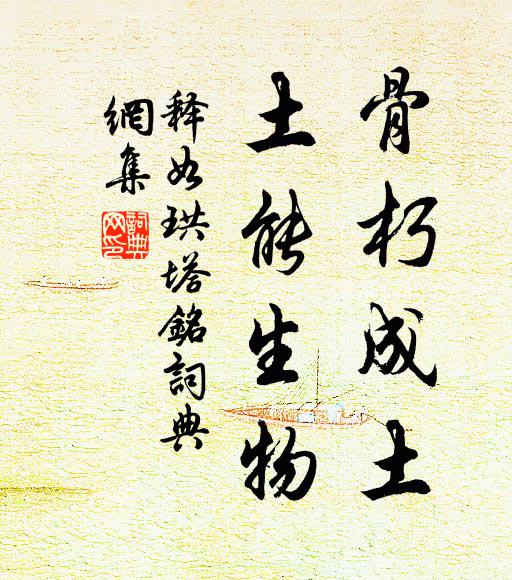 骨朽成土
土能生物
释如珙塔銘詞典
網集
詞典
网印